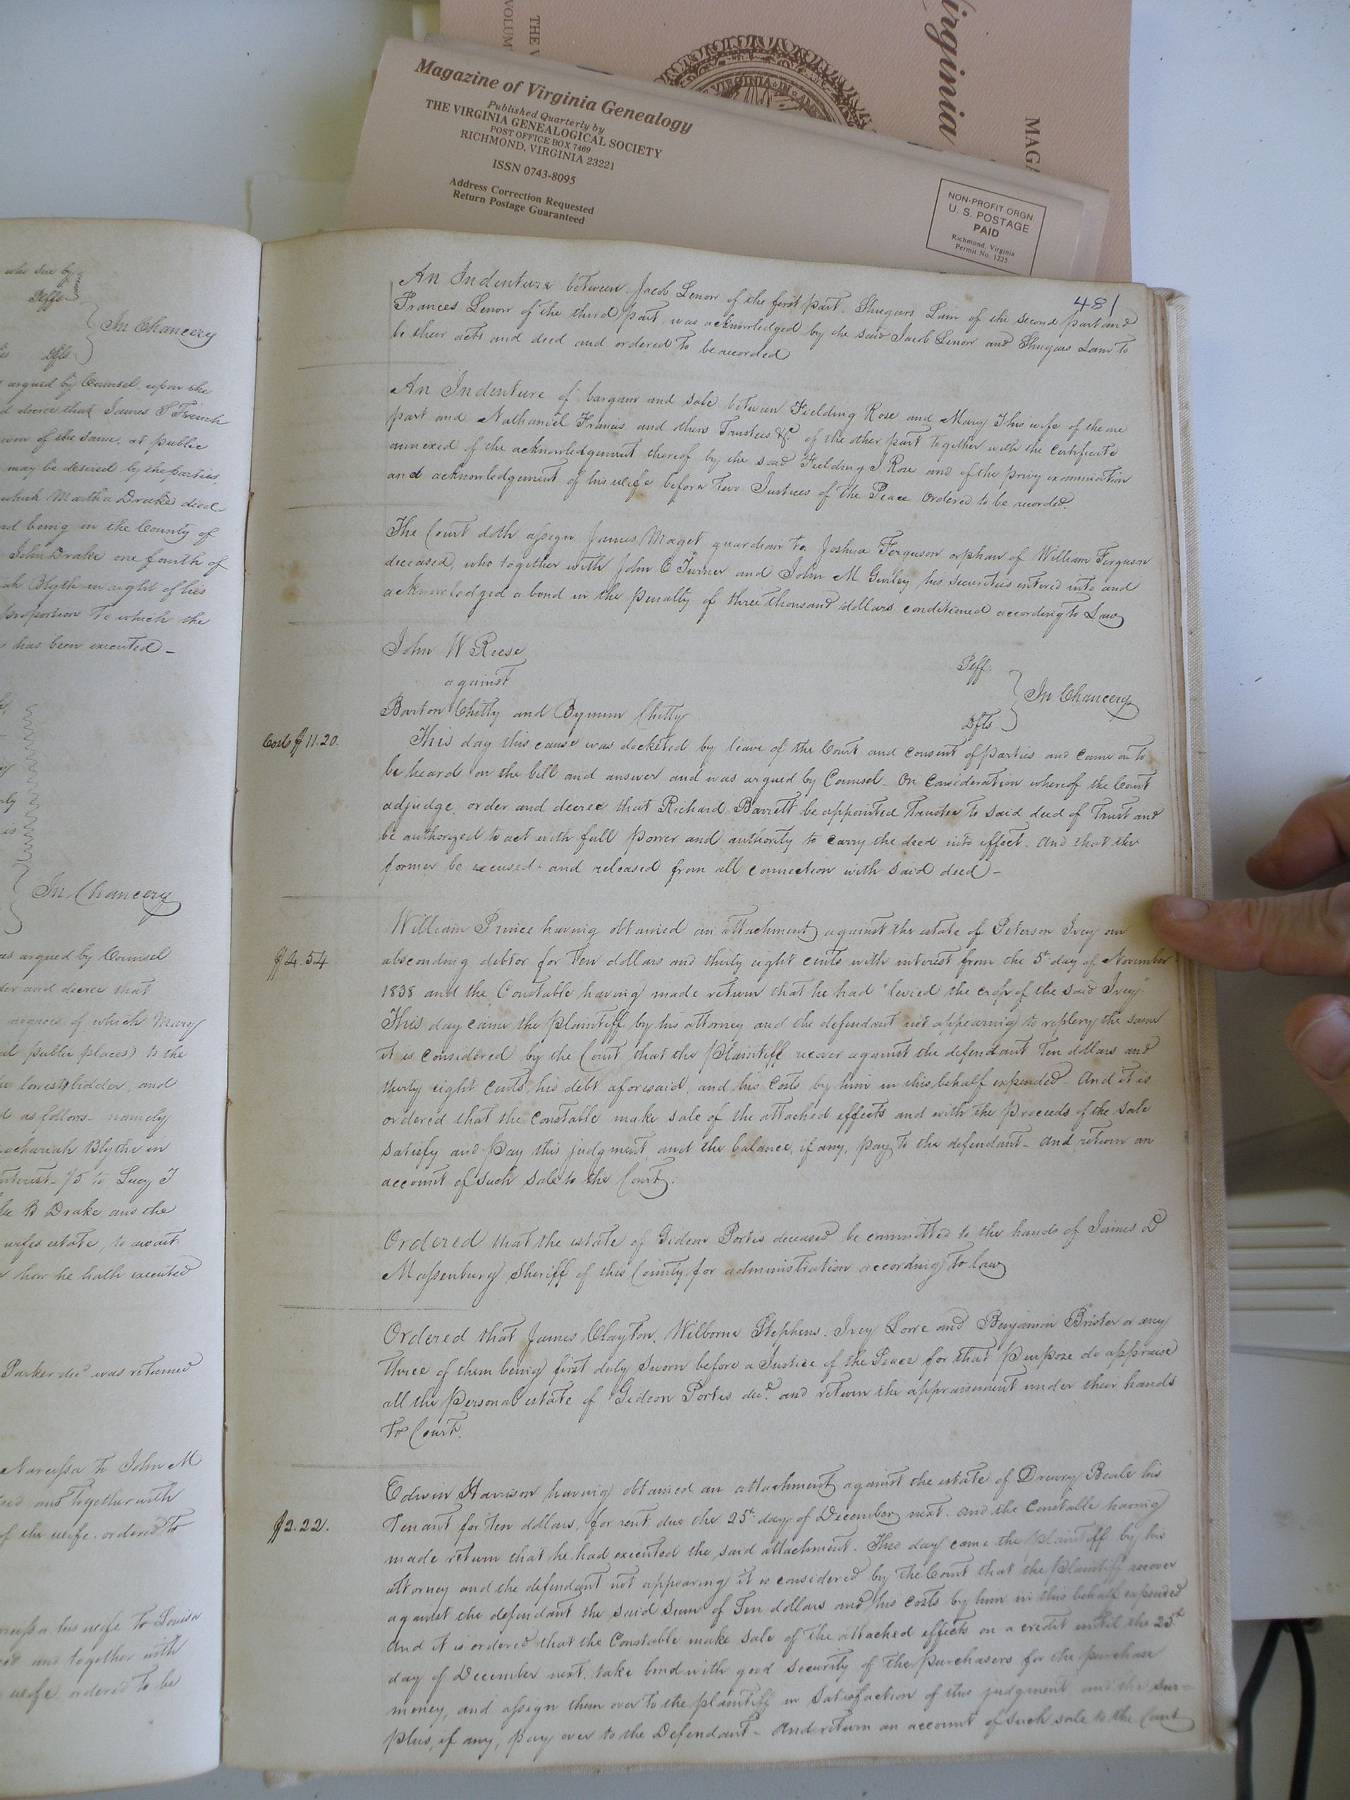 Virginia
THE V
VOLUM
VIRGINIA
MAG
Magazine of Virginia Genealogy
Published Quarterly by
THE VIRGINIA GENEALOGICAL SOCIETY
POST OFFICE BOX 7469
RICHMOND, VIRGINIA 23221
ISSN 0743-8095
Address Correction Requested
Return Postage Guaranteed
NON-PROFIT ORGN
U. S. POSTAGE
PAID
Richmond, Virginia
Permit No. 1225
who sue by
Plffs
In Chancery
Dfts
argued by Counsel, upon the
decree that James S French
of the same, at public
may be desired by the parties,
which Martha Drake died
being in the County of
John Drake one fourth of
Blythe in right of his
proportion to which she
has been executed
In Chancery
as argued by Counsel
and decree that
negroes of which Mary
public places) to the
lowest bidder, and
as follows namely
Zachariah Blythe in
interest 1/5 to Lucy T
B Drake and the
wifes estate, to await
how he hath executed
Parker decd was returned
Narcissa to John M
and together with
of the wife. ordered to
his wife to Louisa
and together with
wife ordered to be
481
An Indenture between Jacob Lenow of the first part, Shugars Lain of the second part and
Frances Lenow of the third part was acknowledged by the said Jacob Lenow and Shugars Lain to
be their acts and deed and ordered to be recorded
An Indenture of bargain and sale between Fielding Rose and Mary T his wife of the one
part and Nathaniel Francis and others Trustees &c of the other part together with the certificate
annexed of the acknowledgement thereof by the said Fielding J Rose and of the privy examination
and acknowledgement of his wife before two Justices of the Peace ordered to be recorded.
The Court doth assign James Maget guardian to Joshua Ferguson orphan of William Ferguson
deceased, who together with John C Turner and John M Gurley his securities entered into and
acknowledged a bond in the penalty of three thousand dollars conditioned according to Law
John W Reese Plff.
against
In Chancery
Barton Chitty and Bynum Chitty Dfts
Costs $11.20.
This day this cause was docketed by leave of the Court and consent of parties and came on to
be heard on the bill and answer and was argued by Counsel On consideration whereof the Court
adjudge, order and decree that Richard Barrett be appointed Trustee to said deed of Trust and
be authorized to act with full power and authority to carry the deed into effect. And that the
former be excused and released from all connection with said deed -
$4.54
William Prince having obtained an attachment against the estate of Peterson Ivey an
absconding debtor for ten dollars and thirty eight cents with interest from the 5th day of November
1838 and the Constable having made return that he had "levied the crop of the said Ivey"
This day came the plaintiff by his attorney and the defendant not appearing to replevy the same
it is considered by the Court that the Plaintiff recover against the defendant Ten dollars and
thirty eight cents his debt aforesaid, and his costs by him in this behalf expended And it is
ordered that the constable make sale of the attached effects and with the proceeds of the sale
satisfy and pay this judgment, and the balance, if any, pay to the defendant - and return an
account of such sale to the Court.
Ordered that the estate of Gideon Portis deceased be committed to the hands of James D
Massenburg Sheriff of this County for administration according to law
Ordered that James Clayton, Wilborne Stephens, Ivey Lowe and Benjamin Brister or any
three of them being first duly sworn before a Justice of the Peace for that purpose do appraise
all the personal estate of Gideon Portis decd. and return the appraisement under their hands
to Court.
$2.22.
Edwin Harrison having obtained an attachment against the estate of Drewry Beale his
Tenant for ten dollars, for rent due the 25th day of December next. and the constable having
made return that he had executed the said attachment. This day came the plaintiff by his
attorney and the defendant not appearing it is considered by the Court that the plaintiff recover
against the defendant the said sum of Ten dollars and his costs by him in this behalf expended
And it is ordered that the Constable make sale of the attached effects on a credit until the 25th
day of December next, take bond with good security of the purchasers for the purchase
money, and assign them over to the plaintiff in satisfaction of this judgment and the sur-
plus, if any, pay over to the Defendant - and return an account of such sale to the Court